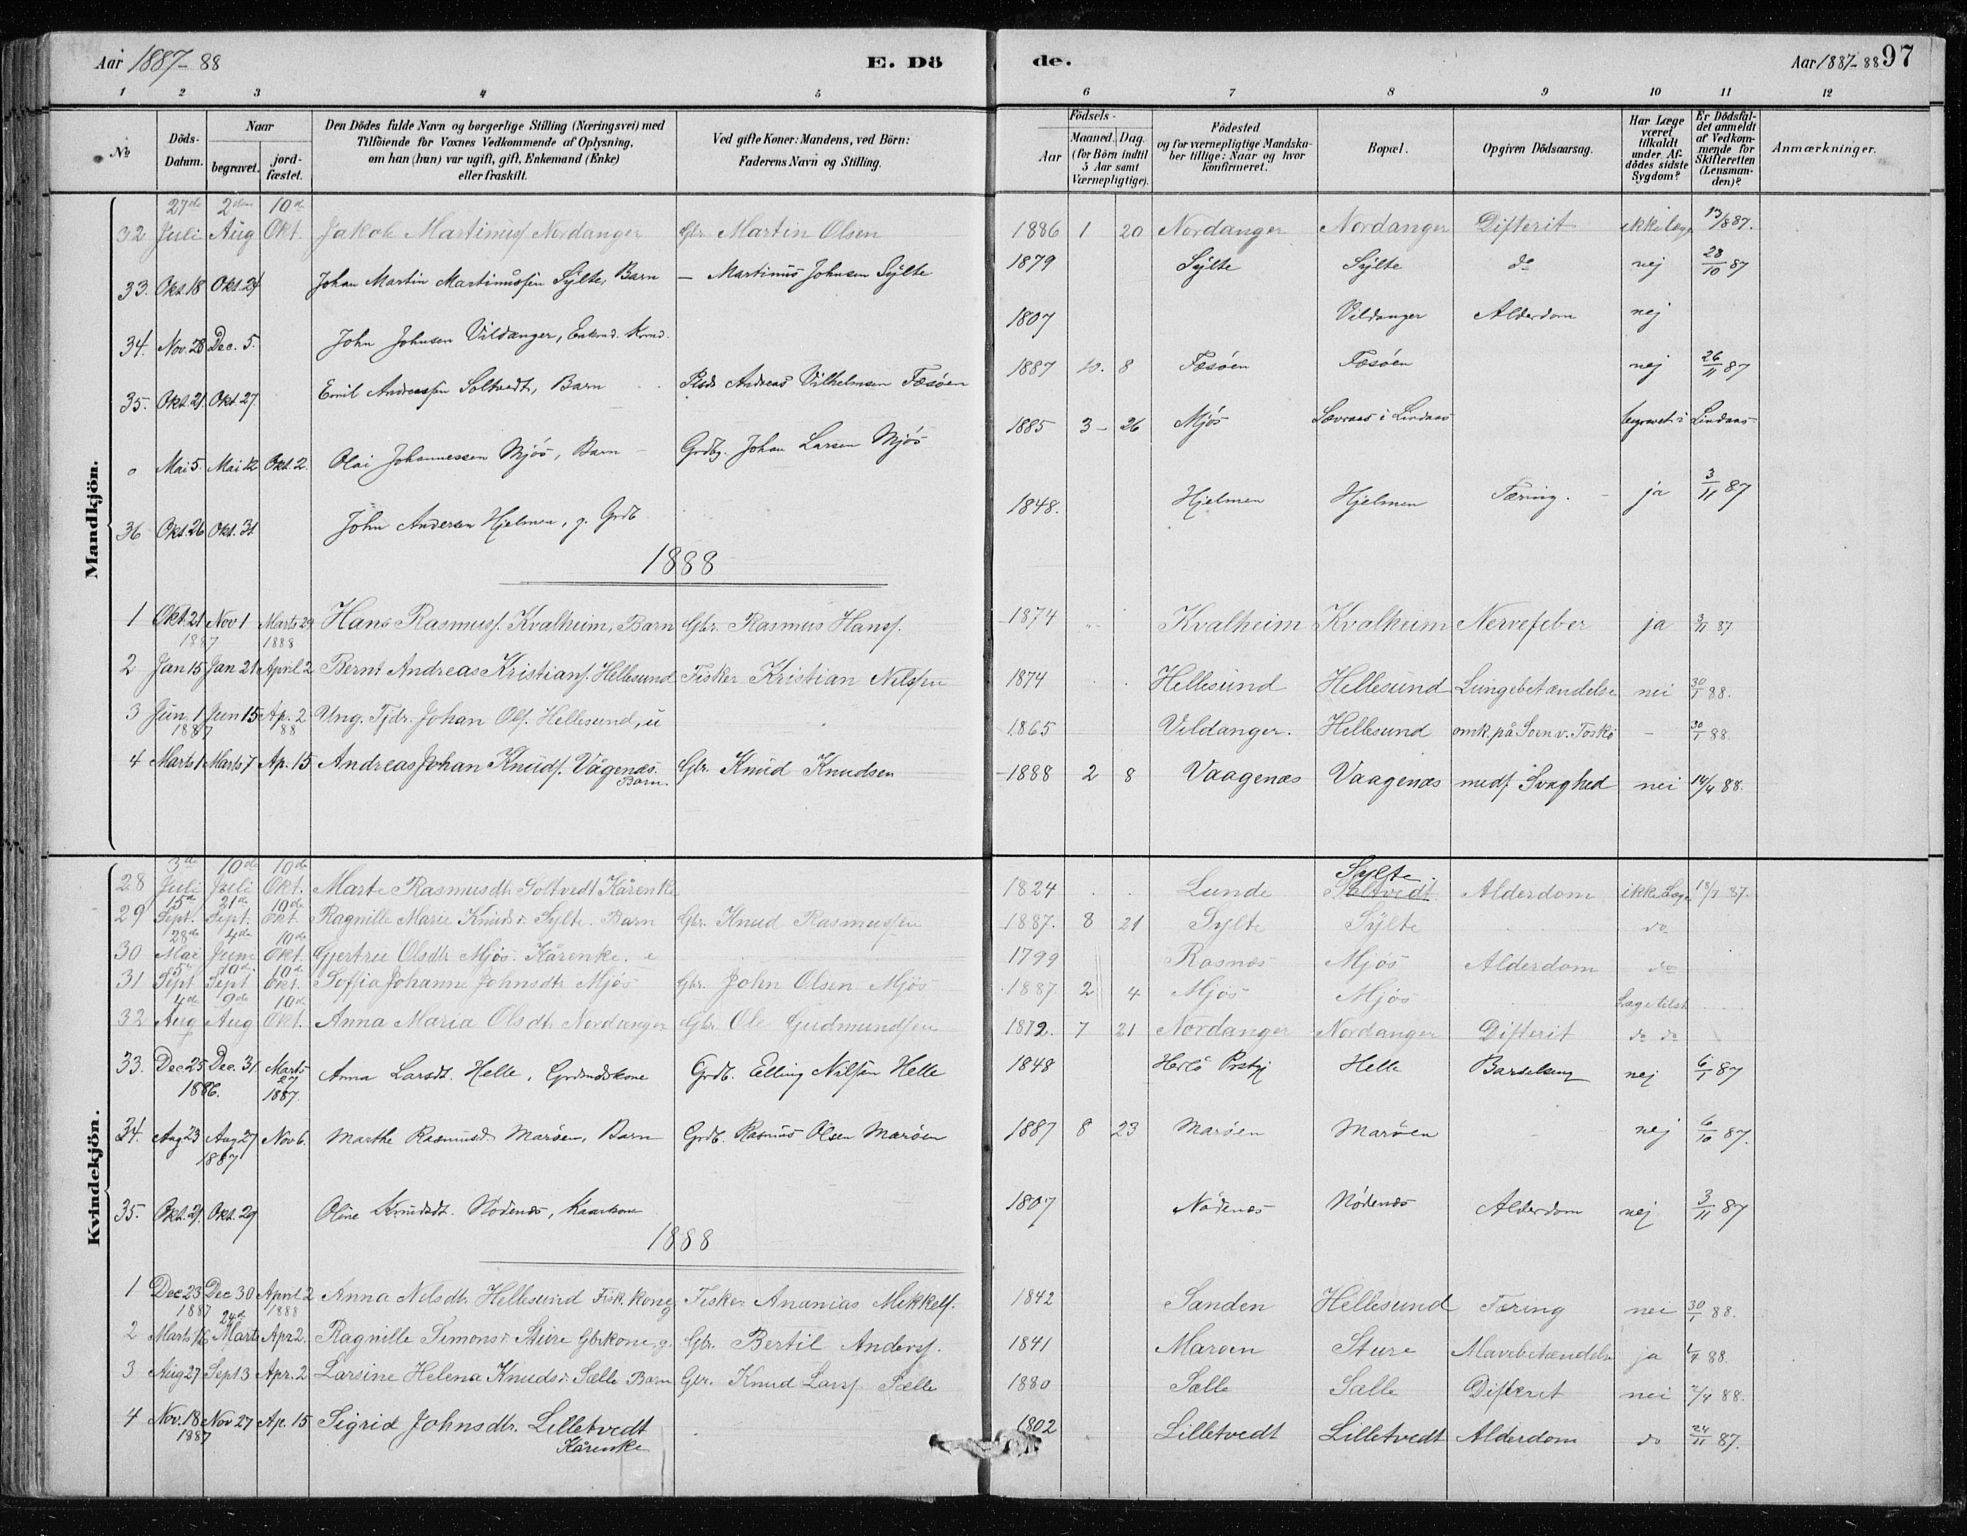 Aar 1887-88 E. Dö de. Aar 1887-88 97
1 2 3 4 5 6 7 8 9 10 11 12
No Döds-Datum. Naar begravet. jordfæstet. Den Dödes fulde Navn og borgerlige Stilling (Næringsvei) med Tilföiende for Voxnes Vedkommende af Oplysning, om han (hun) var ugift, gift, Enkemand (Enke) eller fraskilt. Ved gifte Koner: Mandens, ved Börn: Faderens Navn og Stilling. Födsels- Aar Maaned. Dag. (for Börn indtil 5 Aar samt Værnepligtige). Födested og for værnepligtige Mandskaber tillige: Naar og hvor konfirmeret. Bopæl. Opgiven Dödsaarsag. Har Læge været tilkaldt under Afdödes sidste Sygdom? Er Dödsfaldet anmeldt af Vedkommende for Skifteretten (Lensmanden)? Anmærkninger.
Mandkjön.
32 27de Juli 2den Aug 10de Okt. Jakob Martinusf Nordanger Gbr. Martin Olsen 1886 1 20 Nordanger Nordanger Difterit ikke læge 13/8 87.
33. Okt.18 Okt.24 Johan Martin Martinusfen Sylte, Barn — Martinus Johnsen Sylte 1879 Sylte Sylte do nej 28/10 87
34. Nov.28 Dec. 5. John Johnsen Vildanger, Enkmd. 1807 Vildanger Alderdom nej
35. Okt.21 Okt.27 Emil Andreasfen Soltvedt, Barn Plsds Andreas Vilhelmsen Fæsöen 1887 10. 8 Fæsöen Fæsöen nej 26/11 87
o Mai 5. Mai 12 Okt.2. Olai Johannessen Mjös, Barn – Grdbg. Johan Larsen Mjös 1885 3– 26 Mjös Sævraas i Lindaas begravet i Lindaas
36 Okt.26 Okt.31 John Andersen Hjelmen, g. Grdb 1848. Hjelmen Hjelmen Tæring. – ja 3/11 87
1888
1 Okt.21 1887 Nov 1 Marts 29 1888 Hans Rasmusf. Kvalheim, Barn Gbr. Rasmus Hansf. 1874 Kvalheim Kvalheim Nervefeber ja 3/11 87
2 Jan 15 Jan 21 April 2 Bernt Andreas Kristianf. Hellesund Fisker Kristian Nilsfen 1874 Hellesund Hellesund Lungebetændelse nei 30/1 88.
3 Jun. 1 1887 Jun 15 Ap. 2 88 Ung. Fjdr. Johan Olf. Hellesund, u 1865 Vildanger. Hellesund omk. på Soen v. Toskö – 30/1 88.
4 Marts 1 Marts 7 Ap. 15 Andreas Johan Knudf. Vågenæs. Barn. Gbr. Knud Knudsen 1888 2 8 Vaagenæs Vaagenæs medf. Svaghed nei 14/4 88.
Kvindekjön.
28 3de Juli 10de Juli 10de Okt. Marte Rasmusdtr Soltvedt Kårenke 1824 Lunde Sylte. Soltvedt Alderdom ikke Læge 18/7 87.
29 15de Sept. 21de Sept. 10de Okt. Ragnille Marie Knudsdr. Sylte. Barn Gbr. Knud Rasmusfen 1887. 8 21 Sylte Sylte do
30 28de Mai 4de Juni 10de Okt. Gjertrui Olsdtr Mjös. Kårenke. e 1799 Rosnæs Mjös Alderdom do
31 5te Sept 10de Sept 10de Okt. Sofia Johanne Johnsdtr Mjös Gbr. John Olsen Mjös 1887 2 4 Mjös Mjös Læge tilsk
32 4de Aug 9de Aug 10de Okt. Anna Maria Olsdtr. Nordanger Gbr. Ole Gudmundsfen 1872. 7 21 Nordanger Nordanger Difterit do do
33. Dec 25 1886. Dec. 31 Marts 27 1887. Anna Larsdt. Helle, Grdmdskone Grdb. Elling Nilsfen Helle 1848 Herlö Prstgj Helle Barselseng nej 6/1 87
34. Aug 23 Aug 27 1887 Nov 6. Marthe Rasmusd. Maröen, Barn Grdb. Rasmus Olsen Maröen 1887 8 23 Maröen Maröen nej 6/10 87.
35. Okt. 21. Okt. 29 Oline Knudsdt. Nödenæs, 1807 Nödenæs Nödenæs Alderdom nej 3/11 87
1888
1 Dec 23 1887 Dec 30 April 2 1888 Anna Nilsdtr. Hellesund Fisk. kone g Fisker Ananias Mikkelf. 1842 Sanden Hellesund Tæring nei 30/1 88.
2 Marts 16 24de Marts Apr 2. Ragnille Simonsdr Sture Gbrkone. g. Gbr. Bertil Andersf. 1841 Maröen Sture Mavebetændelse ja 88.
3 Aug 27 Sept 3 Apr. 2 Larsine Helena Knudsdr. Sælle Barn Gbr. Knud Larsf Sælle 1880 Sælle Sælle Difterit nei 2/4 88.
4 Nov. 18 1887 Nov 27 Ap. 15 Sigrid Johnsdtr. Lilletvedt Kårenke 1802 Lilletvedt Lilletvedt Alderdom do 24/11 87.